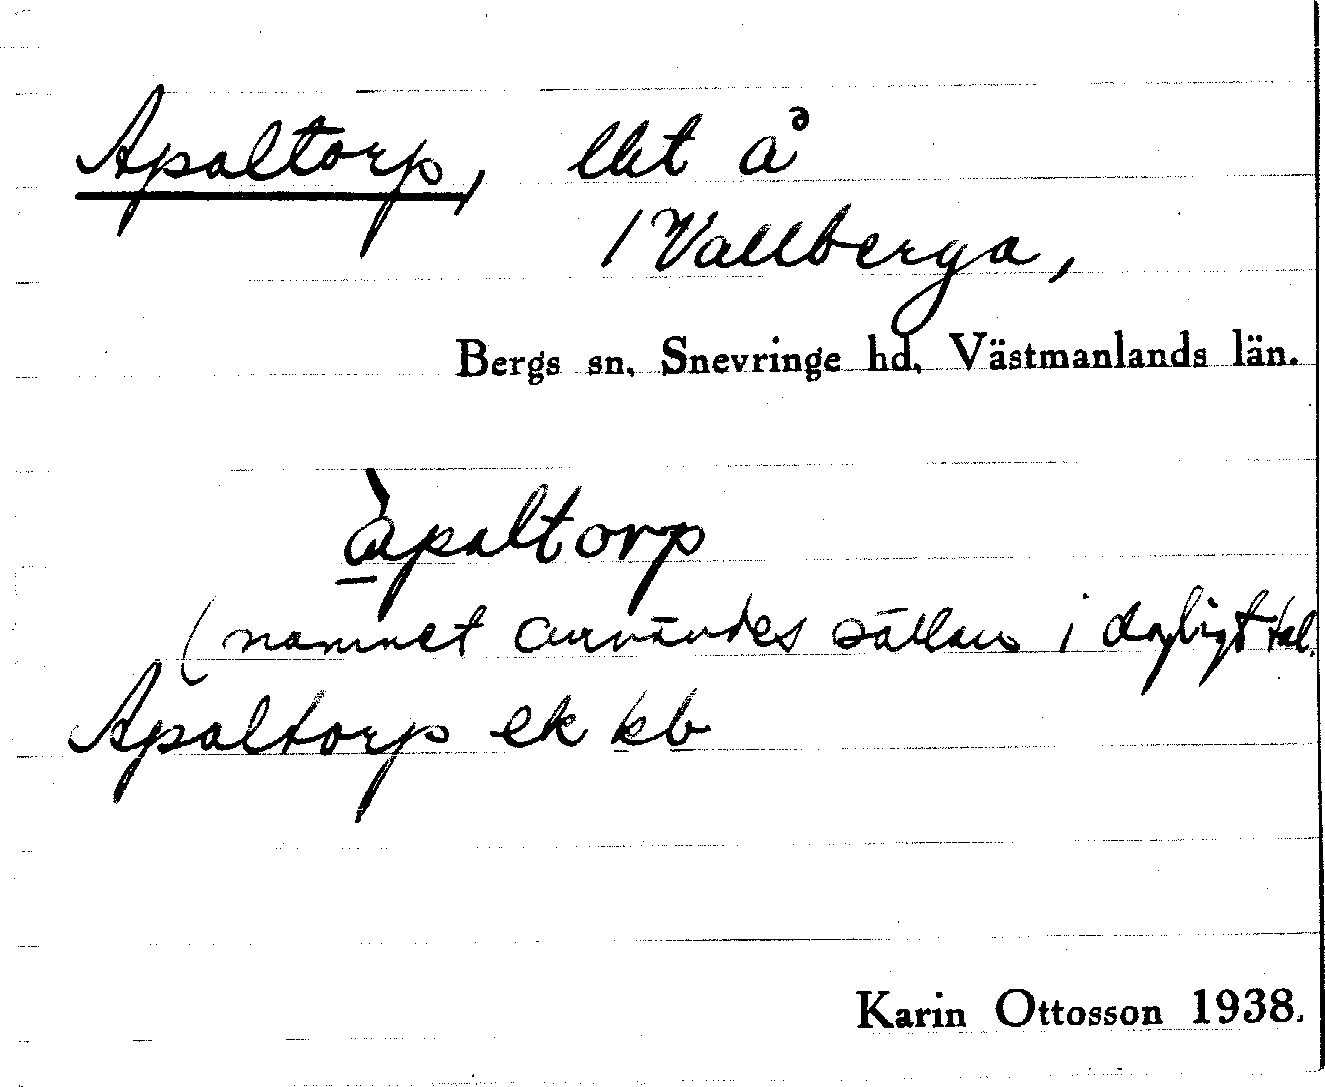 Apaltorp, lht å
/ Vallberga,
Bergs sn, Snevringe hd, Västmanlands län.
àpaltorp
(namnet användes sällan i dagligt tal.
Apaltorp ek kb
Karin Ottosson 1938.